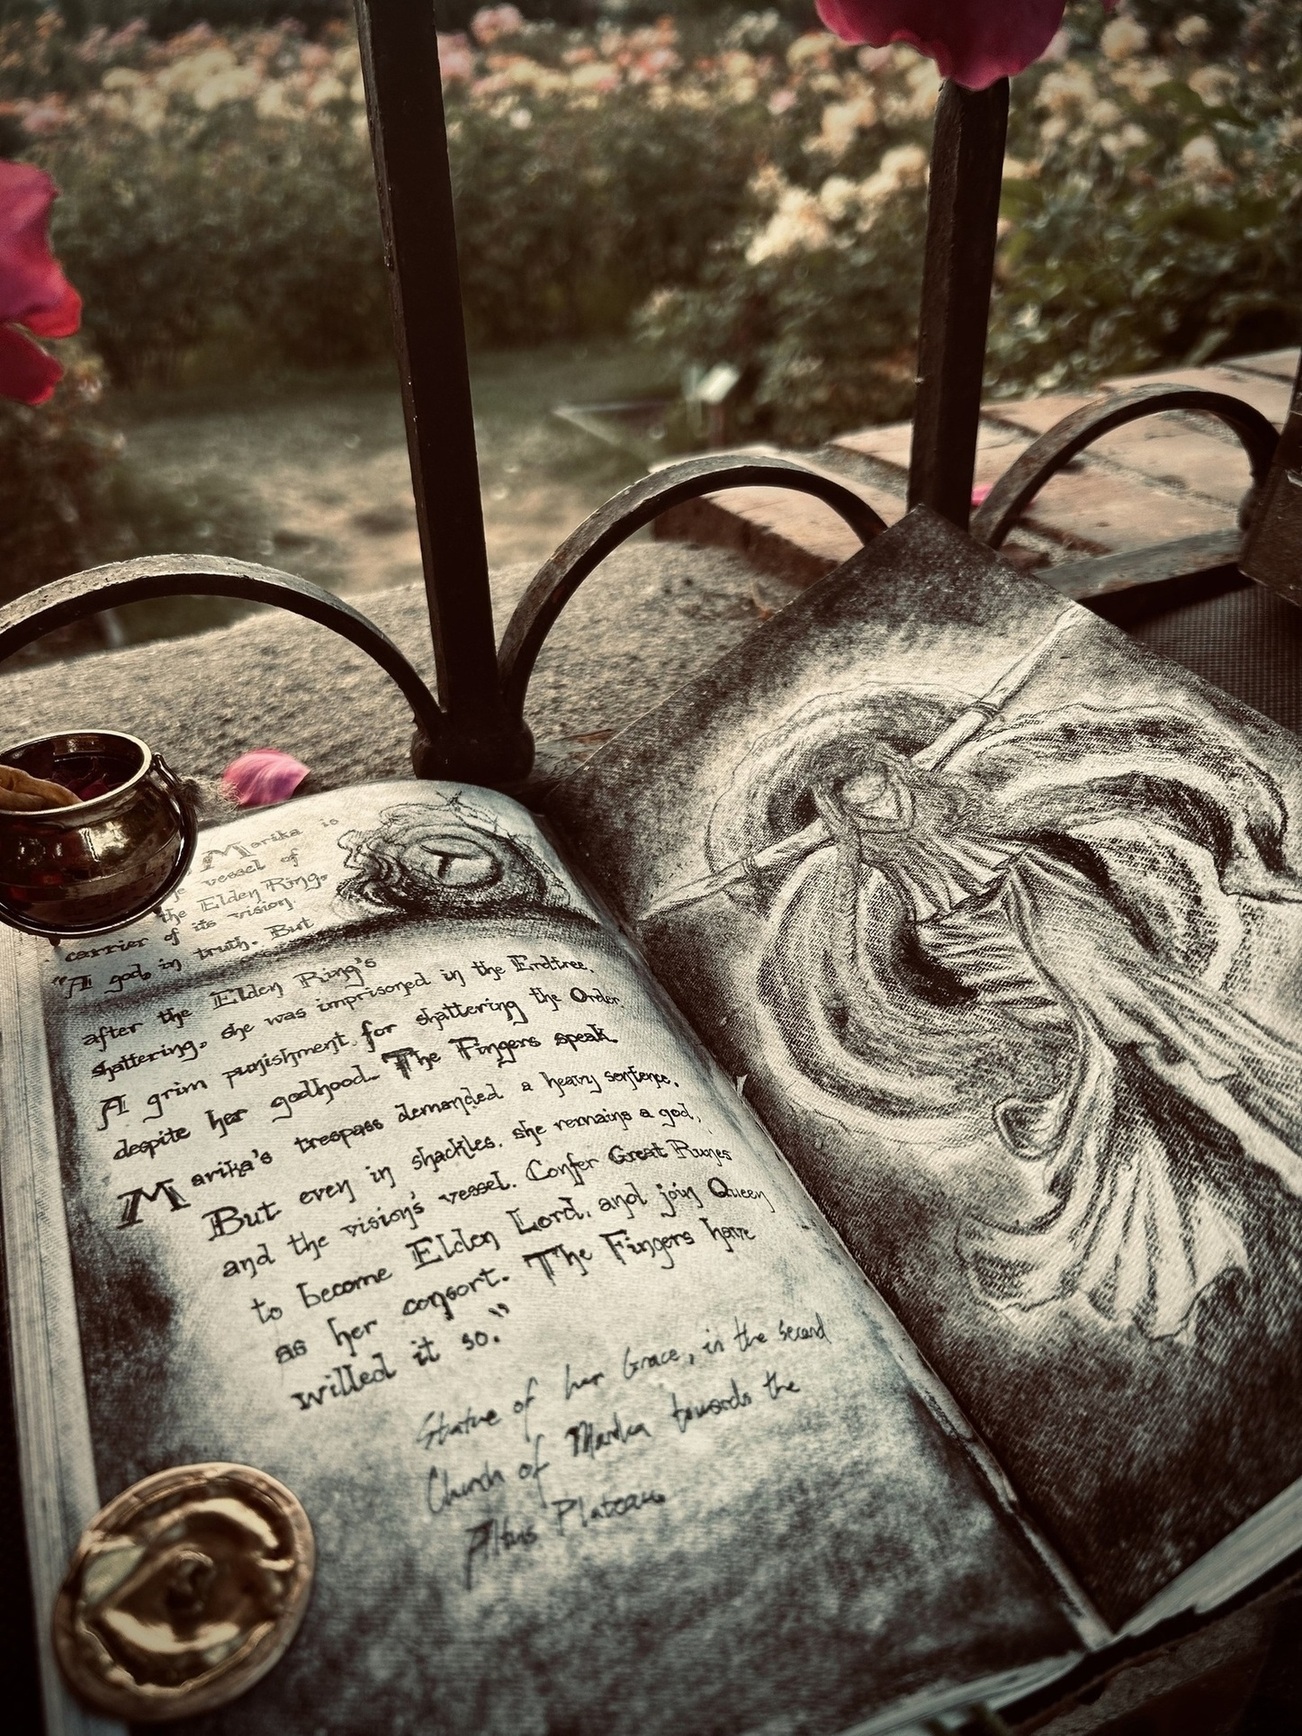 Marika is
the vessel of
the Elden Ring,
carrier of its vision
"A god, in truth. But
after the Elden Ring's
shattering, she was imprisoned in the Erdtree.
A grim punishment for shattering the Order
despite her godhood. The Fingers speak.
Marika's trespass demanded a heavy sentence.
But even in shackles, she remains a god,
and the vision's vessel. Confer Great Runes
to become Elden Lord, and join Queen
as her consort. The Fingers have
willed it so."
Statue of her Grace, in the second
Church of Marika towards the
Altus Plateau